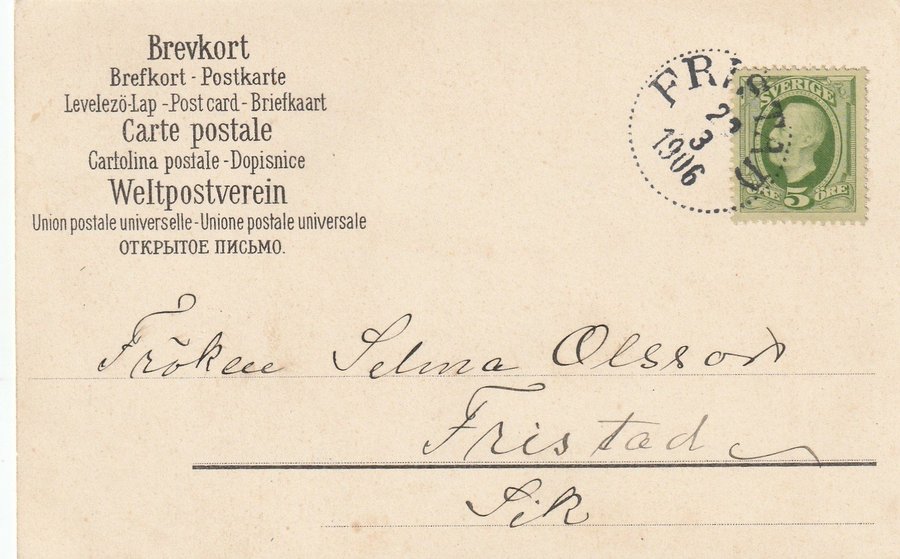 Brevkort
Brefkort - Postkarte
Levelezö-Lap - Post card - Briefkaart
Carte postale
Cartolina postale - Dopisnice
Weltpostverein
Union postale universelle - Unione postale universale
ОТКРЫТОЕ ПИСЬМО.
FRISTAD
22
3
1906
SVERIGE
ÖRE 5 ÖRE
Fröken Selma Olsson
Fristad
Sik